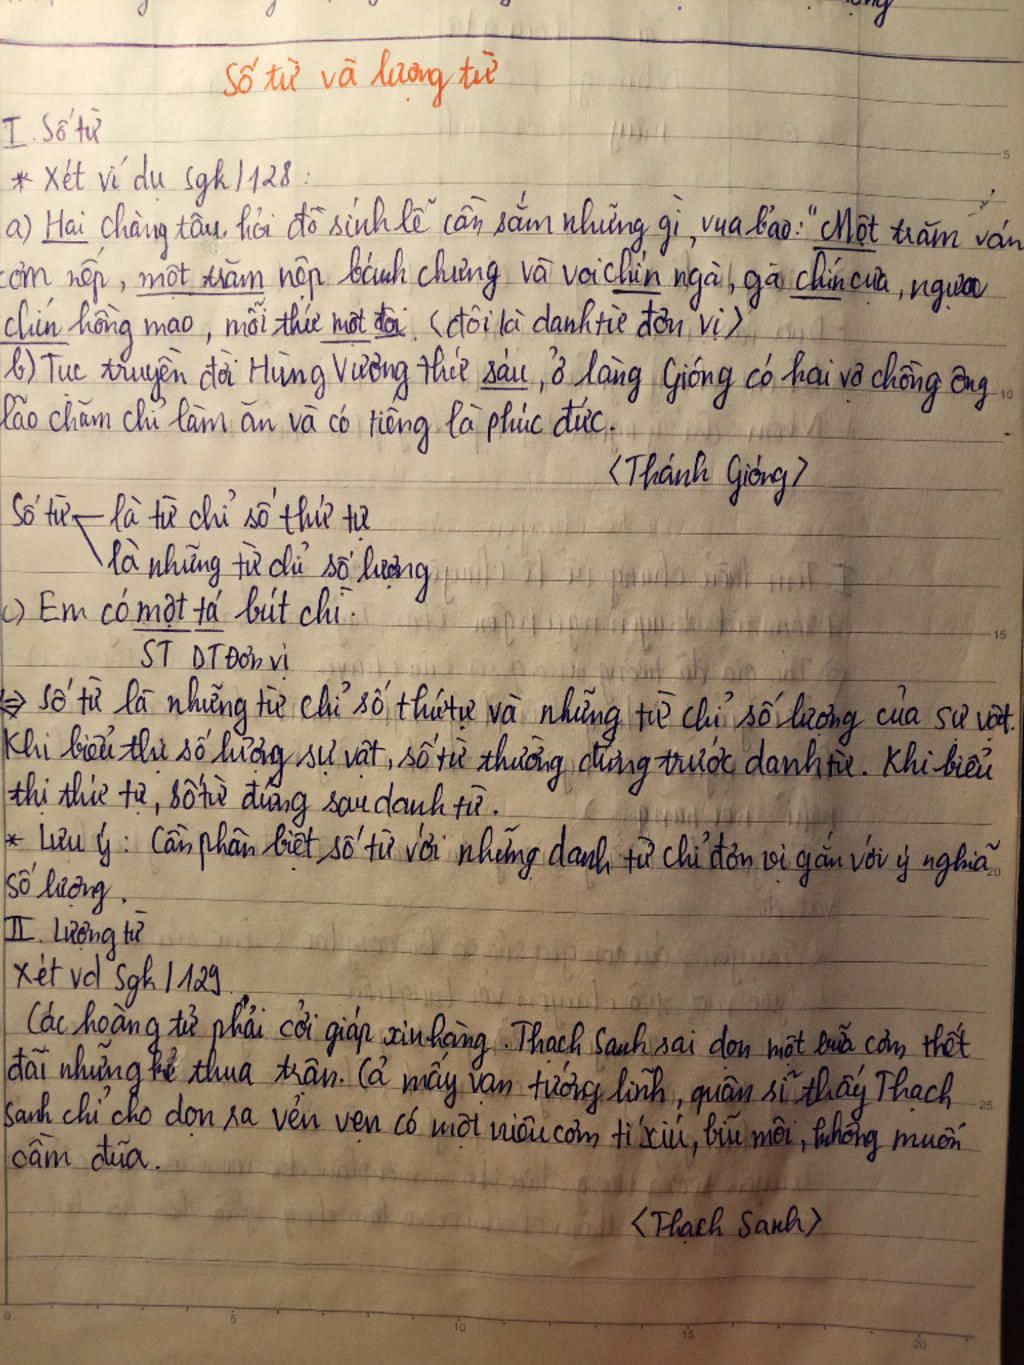 Số từ và lượng từ
I. Số từ
* Xét ví dụ Sgk/128:
a) Hai chàng tâu hỏi đồ sính lễ cần sắm những gì, vua bảo: "Một trăm ván
cơm nếp, một trăm nệp bánh chưng và voi chín ngà, gà chín cựa, ngựa
chín hồng mao, mỗi thứ một đôi. <đôi là danh từ đơn vị>
b) Tục truyền đời Hùng Vương thứ sáu, ở làng Gióng có hai vợ chồng ông
lão chăm chỉ làm ăn và có tiếng là phúc đức.
<Thánh Gióng>
Số từ là từ chỉ số thứ tự
là những từ chỉ số lượng
c) Em có một tá bút chì.
ST DT Đơn vị
=> Số từ là những từ chỉ số thứ tự và những từ chỉ số lượng của sự vật.
Khi biểu thị số lượng sự vật, số từ thường đứng trước danh từ. Khi biểu
thị thứ tự, số từ đứng sau danh từ.
* Lưu ý: Cần phân biệt số từ với những danh từ chỉ đơn vị gắn với ý nghĩa
số lượng.
II. Lượng từ
Xét vd Sgk/129
Các hoàng tử phải cởi giáp xin hàng. Thạch Sanh sai dọn một bữa cơm thết
đãi những kẻ thua trận. Cả mấy vạn tướng lĩnh, quân sĩ thấy Thạch
Sanh chỉ cho dọn ra vẻn vẹn có một niêu cơm tí xíu, bĩu môi, không muốn
cầm đũa.
<Thạch Sanh>